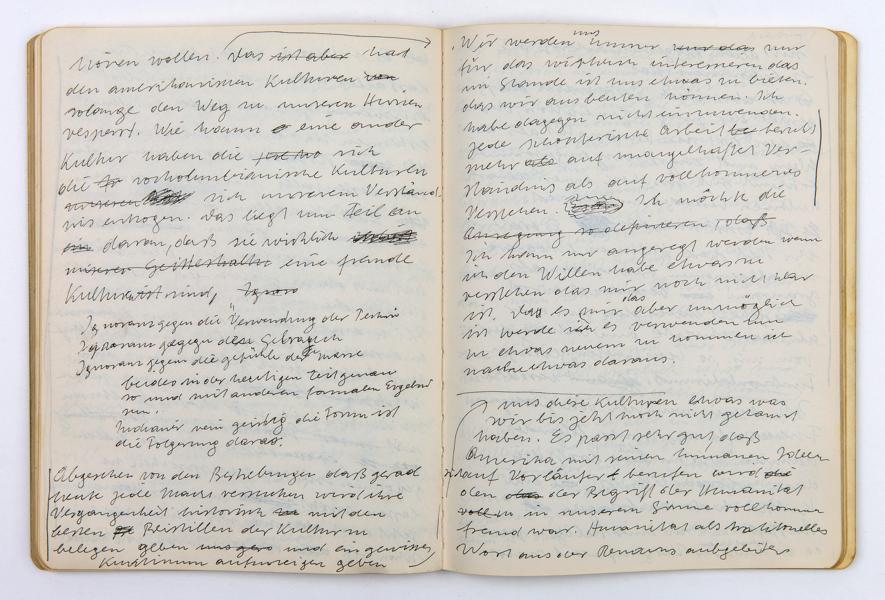 hören wollen. Das ist aber hat
den amerikanischen Kulturen von
solange den Weg zu unseren Hirnen
versperrt. Wie kaum eine andere
Kultur haben die sich
die vorkolumbianische Kulturen
unseren sich unserem Verständ-
nis entzogen. Das liegt zum Teil an
daran, daß sie wirklich
unserer Geisteshaltu eine fremde
Kulturen ist sind, Ignora
Ignoranz gegen die Verwendung der
Ignoranz gegen den Gebrauch
Ignoranz gegen die gefühle der Masse
beides in der heutigen Zeit genau
so und mit anderen formalen Ergebnis
sen.
Indianer rein geistig die Form ist
die Folgerung daraus.
Abgesehen von den Bestrebungen daß gerad
heute jede Macht versuchen wird ihre
Vergangenheit historisch zu mit den
besten Beispielen der Kultur zu
belegen geben und ein gewisses
aufzuzeigen geben
Wir werden uns immer nur das nur
für das wirklich interessieren das
im Stande ist uns etwas zu bieten.
das wir ausbeuten können. Ich
habe dagegen nichts einzuwenden.
jede schöpferische Arbeit be beruht
mehr als auf mangelhaftes Ver-
ständnis als auf vollkommenes
Verstehen. Ich möchte die
Anregung so definieren, daß
Ich kann nur angeregt werden wenn
ich den Willen habe etwas zu
verstehen das mir noch nicht klar
ist. Da es mir das aber unmöglich
ist werde ich es verwenden um
zu etwas neuem zu kommen ich
mache etwas daraus.
uns diese Kulturen etwas was
wir bis jetzt noch nicht gekannt
haben. Es passt sehr gut daß
Amerika mit seinen humanen Ideen
sich auf Vorläufer berufen wird die
den das der Begriff der Humanität
voll in in unserem Sinne vollkommen
fremd war. Humanität als traditionelles
Wort aus der Renaiss aufgebautes